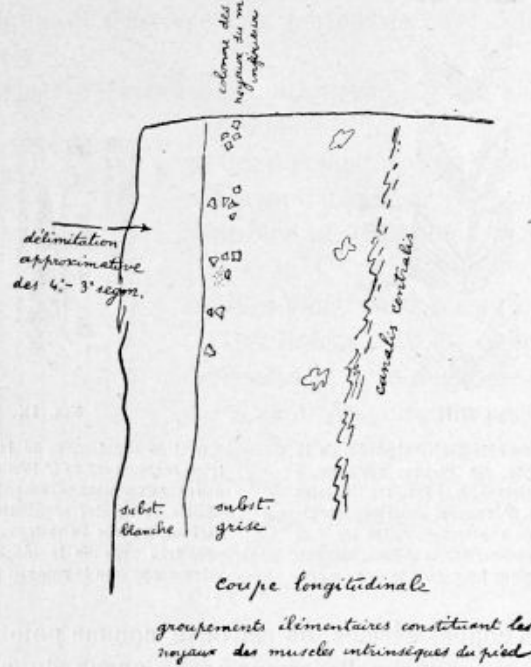 colonne des
noyaux du m
inférieur
délimitation
approximative
des 4e- 3e segm.
canalis centralis
subst.
blanche
subst.
grise
Coupe longitudinale
groupements élémentaires constituant les
noyaux des muscles intrinsèques du pied